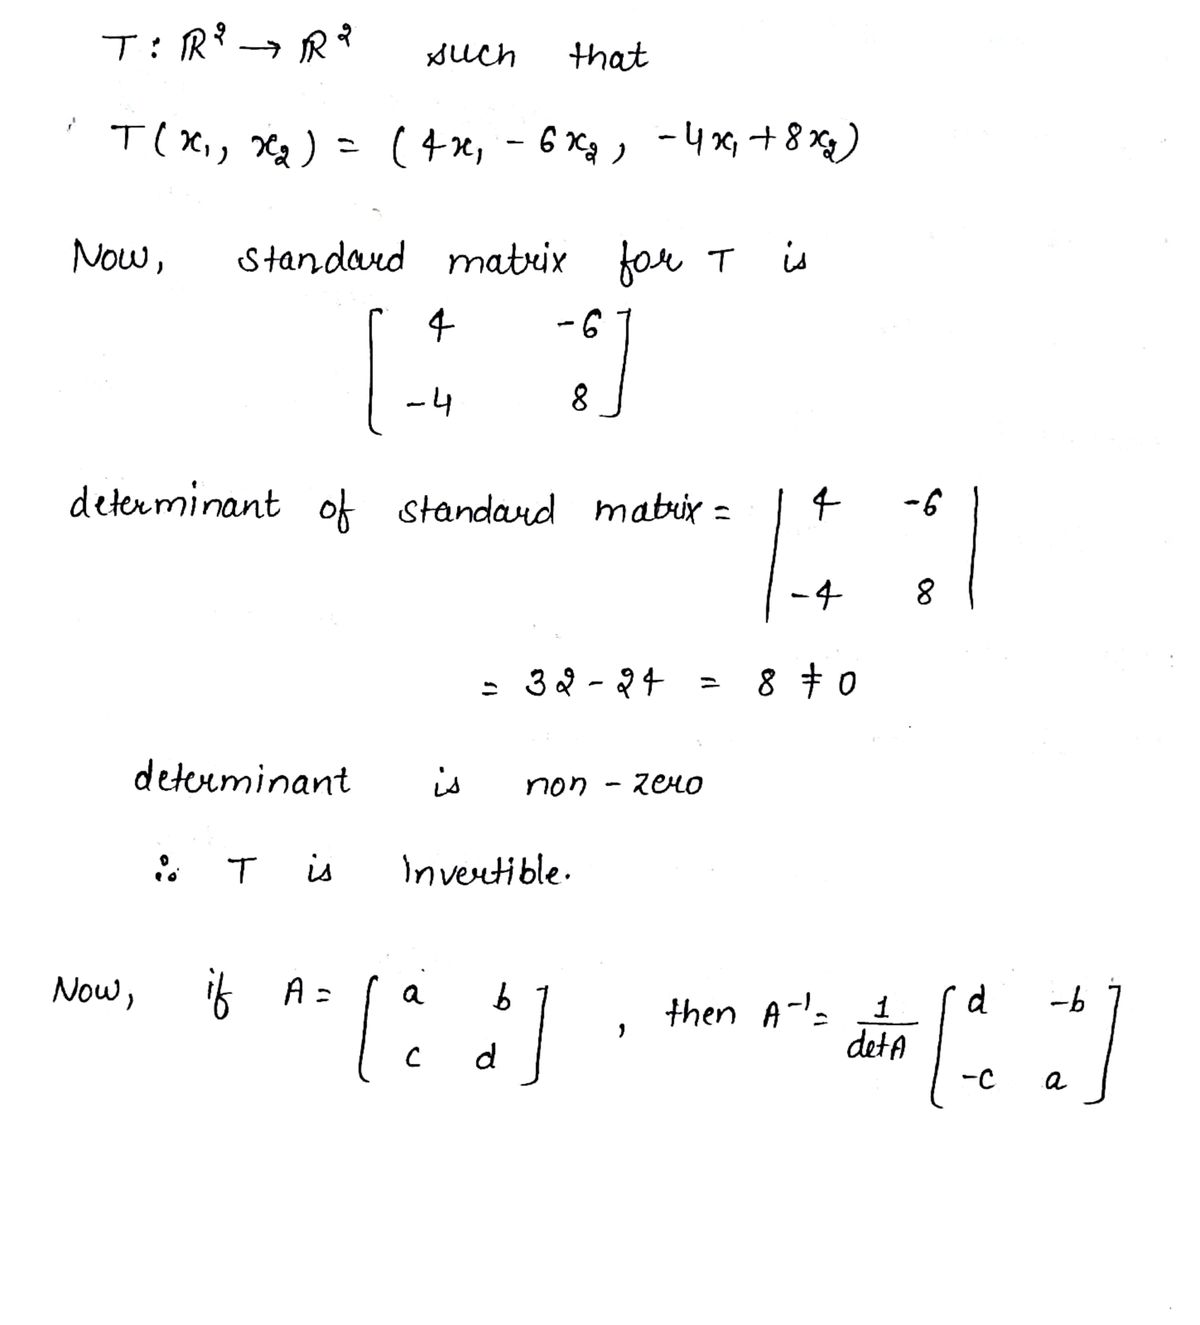 T : ℝ² → ℝ² such that
T(x₁, x₂) = (4x₁ - 6x₂, -4x₁ + 8x₂)
Now, standard matrix for T is
[ 4 -6 ]
[ -4 8 ]
determinant of standard matrix = | 4 -6 |
| -4 8 |
= 32 - 24 = 8 ≠ 0
determinant is non - zero
∴ T is Invertible.
Now, if A = [ a b ; c d ] , then A⁻¹ = 1/det A [ d -b ; -c a ]